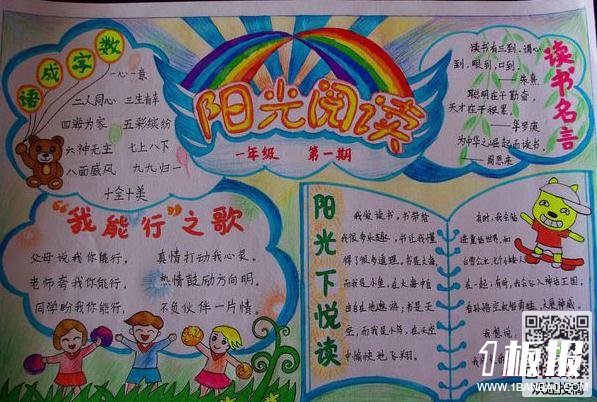 阳光阅读
一年级 第一期
数字成语
一心一意
二人同心 三生有幸
四海为家 五彩缤纷
六神无主 七上八下
八面威风 九九归一
十全十美
读书名言
读书有三到，谓心
到，眼到，口到。
——朱熹
聪明在于勤奋，
天才在于积累。
——华罗庚
为中华之崛起而读书。
——周恩来
“我能行”之歌
父母说我你能行， 真情打动我心灵。
老师夸我你能行， 热情鼓励方向明。
同学盼我你能行， 不负伙伴一片情。
阳光下悦读
我爱读书，书带给
我很多乐趣，书让我懂
得了很多道理。书是大海
而我是小鱼，在大海中自
由自在地遨游；书是天
空，而我是小鸟，在天空
中愉快地飞翔。
有时，我会钻
进童话世界，和
白雪公主、七个小矮人
在一起；有时，我会飞入神话王国，
看孙悟空
我想说，
我
1板报
WWW.1BANBAO.COM
欢迎投稿